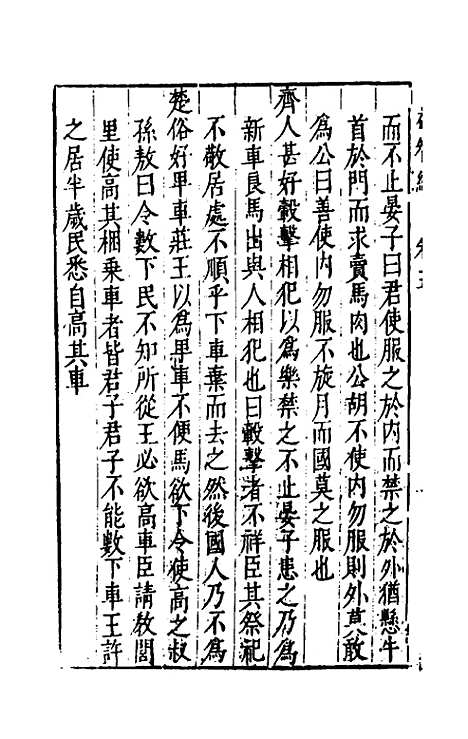 而不止晏子曰君使服之於内而禁之於外猶懸牛
首於門而求賣馬肉也公胡不使内勿服則外莫敢
為公曰善使内勿服不旋月而國莫之服也
齊人甚好轂擊相犯以為樂禁之不止晏子患之乃為
新車良馬出與人相犯也曰轂擊者不祥臣其祭祀
不敬居處不順乎下車棄而去之然後國人乃不為
楚俗好卑車莊王以為卑車不便馬欲下令使高之叔
孫敖曰令數下民不知所從王必欲高車臣請敎閭
里使高其梱乗車者皆君子君子不能數下車王許
之居半歳民悉自高其車